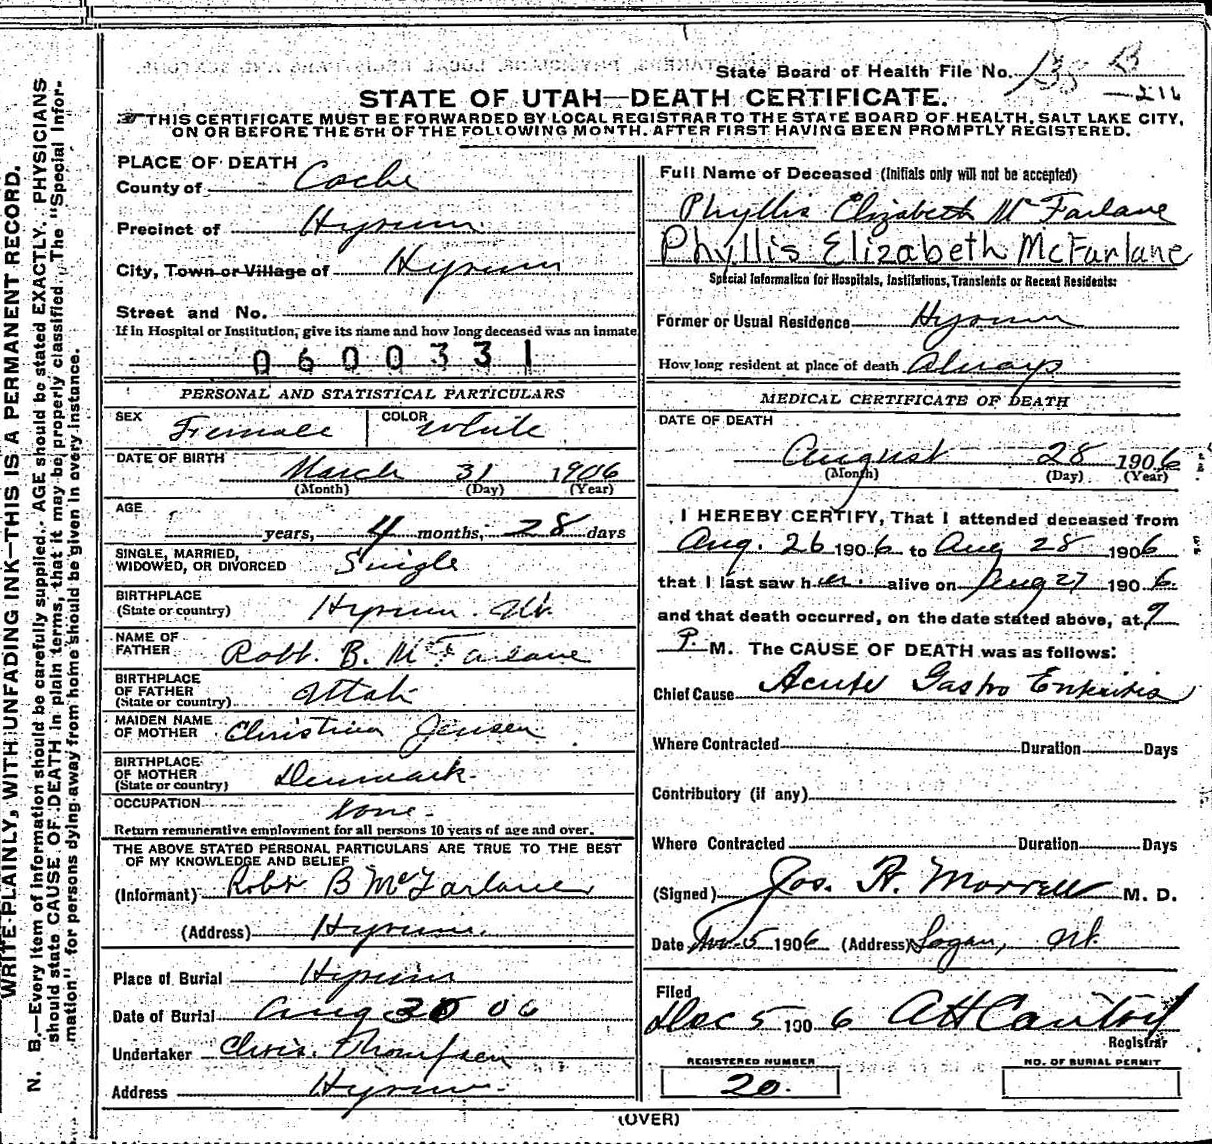 State Board of Health File No. 138 B
216
STATE OF UTAH—DEATH CERTIFICATE.
THIS CERTIFICATE MUST BE FORWARDED BY LOCAL REGISTRAR TO THE STATE BOARD OF HEALTH, SALT LAKE CITY,
ON OR BEFORE THE 5TH OF THE FOLLOWING MONTH, AFTER FIRST HAVING BEEN PROMPTLY REGISTERED.
WRITE PLAINLY, WITH UNFADING INK—THIS IS A PERMANENT RECORD.
N. B.—Every item of information should be carefully supplied. AGE should be stated EXACTLY. PHYSICIANS
should state CAUSE OF DEATH in plain terms, that it may be properly classified. The "Special Infor-
mation" for persons dying away from home should be given in every instance.
PLACE OF DEATH
County of Cache
Precinct of Hyrum
City, Town or Village of Hyrum
Street and No.
If in Hospital or Institution, give its name and how long deceased was an inmate
0600331
PERSONAL AND STATISTICAL PARTICULARS
SEX Female COLOR White
DATE OF BIRTH
March 31 1906
(Month) (Day) (Year)
AGE
years, 4 months, 28 days
SINGLE, MARRIED,
WIDOWED, OR DIVORCED Single
BIRTHPLACE
(State or country) Hyrum Ut.
NAME OF
FATHER Robt. B. McFarlane
BIRTHPLACE
OF FATHER
(State or country) Utah
MAIDEN NAME
OF MOTHER Christina Jensen
BIRTHPLACE
OF MOTHER
(State or country) Denmark
OCCUPATION none
Return remunerative employment for all persons 10 years of age and over.
THE ABOVE STATED PERSONAL PARTICULARS ARE TRUE TO THE BEST
OF MY KNOWLEDGE AND BELIEF
(Informant) Robt B McFarlane
(Address) Hyrum
Place of Burial Hyrum
Date of Burial Aug 30 06
Undertaker Chris. Thompsen
Address Hyrum
Full Name of Deceased (Initials only will not be accepted)
Phyllis Elizabeth McFarlane
Phyllis Elizabeth McFarlane
Special Information for Hospitals, Institutions, Transients or Recent Residents:
Former or Usual Residence Hyrum
How long resident at place of death Always
MEDICAL CERTIFICATE OF DEATH
DATE OF DEATH
August 28 1906
(Month) (Day) (Year)
I HEREBY CERTIFY, That I attended deceased from
Aug. 26 1906 to Aug 28 1906
that I last saw her alive on Aug 27 1906
and that death occurred, on the date stated above, at 9
P. M. The CAUSE OF DEATH was as follows:
Chief Cause Acute Gastro Enteritis
Where Contracted Duration Days
Contributory (if any)
Where Contracted Duration Days
(Signed) Jos. R. Morrell M. D.
Date Nov. 5 1906 (Address) Logan, Ut.
Filed
Dec 5 1906
Registrar
REGISTERED NUMBER
20.
NO. OF BURIAL PERMIT
(OVER)